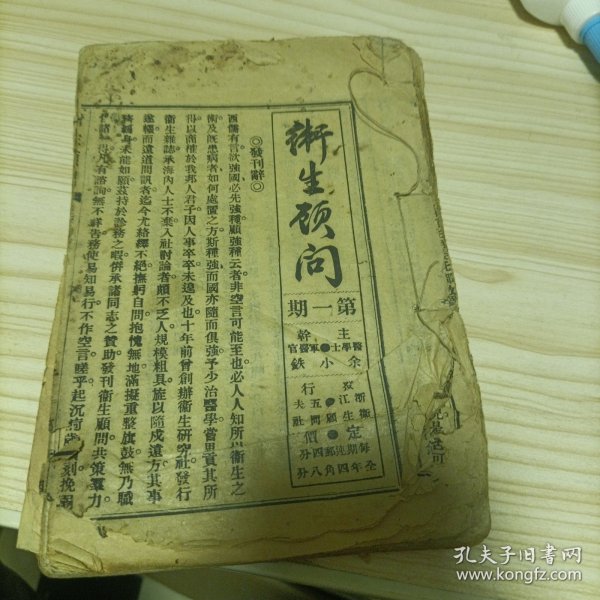 衛生顧問
第一期
主幹
醫學士 軍醫官
余小鉄
發行
浙江五夫
衛生顧問社
定價
每期連郵四分
全年四角八分
◎發刊辭◎
西儒有言欲強國必先強種顧強種云者非空言可能至也必人人知所以衛生之
術及既患病者如何處置之方斯種強而國亦隨而俱強予少治醫學嘗思貢其所
得以商榷於我邦人君子因人事卒卒未遑及也十年前曾創辦衛生研究社發行
衛生雜誌承海內人士不棄入社討論者頗不乏人規模粗具旋以隨戍遠方其事
遂輟而遠道問訊者迄今尤絡繹不絕撫躬自問抱愧無地滿擬重整旗鼓無乃職
務纏身未能如願茲特於診務之暇併承諸同志之贊助發刊衛生顧問共策羣力
得凡有諮詢無不詳告務使易知易行不作空言嗟乎起沉疴
刻挽
孔夫子旧书网
www.kongfz.com